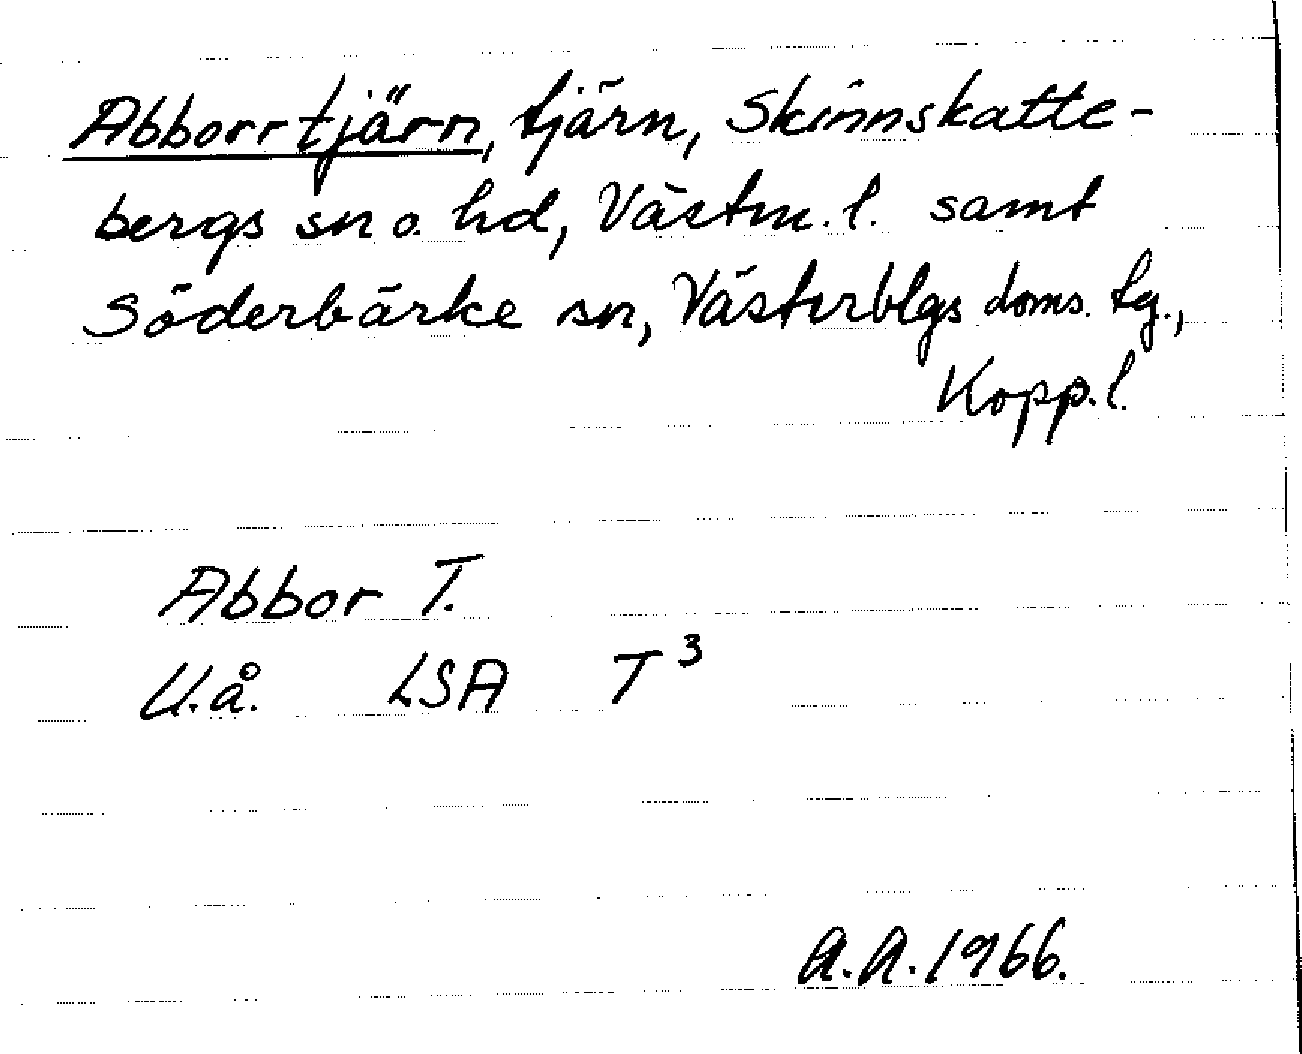 Abborrtjärn, tjärn, Skinnskatte-
bergs sn o. hd, Västm. l. samt
Söderbärke sn, Västerblgs doms. tg.,
Kopp. l.
Abbor T.
U.å. LSA T³
A.A. 1966.